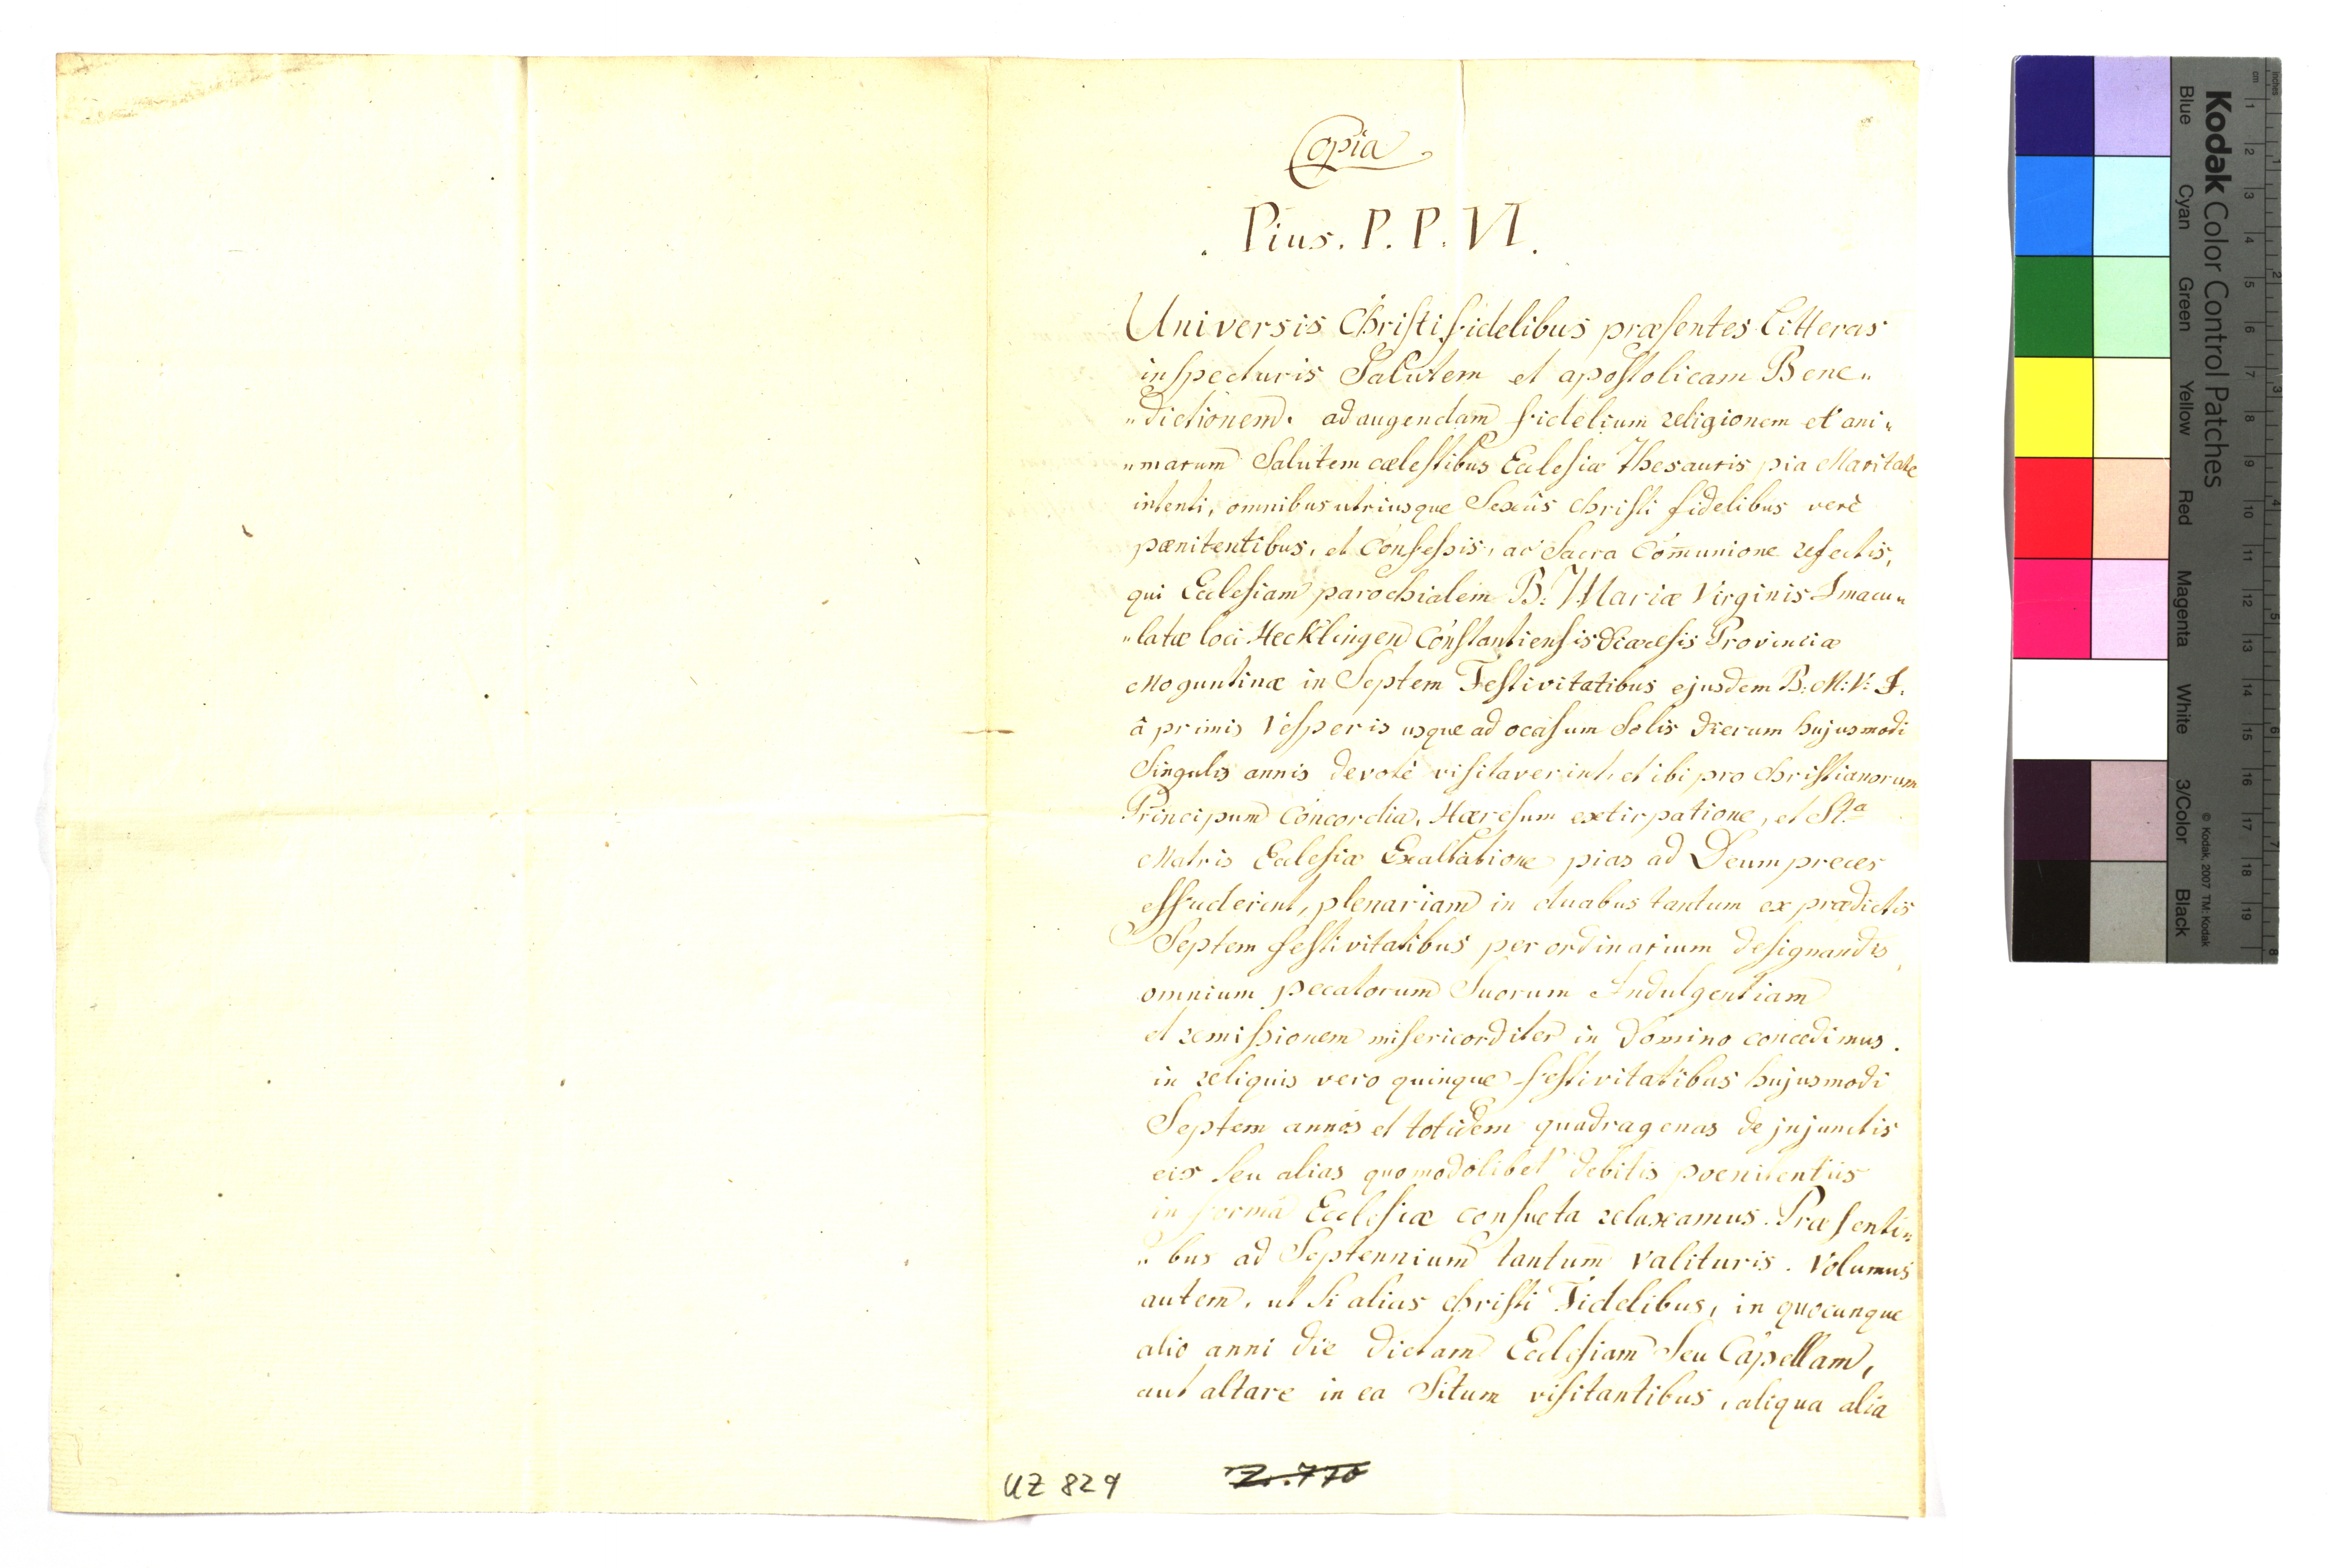 Copia
. Pius. P. P. VI.
Universis Christi fidelibus præsentes Litteras
inspecturis Salutem et apostolicam Bene„
„dictionem. ad augendam fidelium religionem et ani„
„marum Salutem cælestibus Ecclesiæ Thesauris pia
intenti, omnibus utriusque Sexûs christi fidelibus verè
pænitentibus, et Confessis, ac Sacra Com̄unione refectis,
qui Ecclesiam parochialem B: Mariæ Virginis Imacu„
„latæ loci Hecklingen Constantiensis Diæcesis Provinciæ
Moguntinæ in Septem Festivitatibus ejusdem B: M: V: I.
â primis Vesperis usque ad ocasum Solis dierum hujusmodi
Singulis annis devotè visitaverint, et ibi pro christianorum
Principum Concordia, Hæresum extirpatione, et Sta
Matris Ecclesiæ Exaltatione pias ad Deum preces
effuderint, plenariam in duabus tantum ex prædictis
Septem festivitatibus per ordinarium designandis,
omnium pecatorum Suorum Indulgentiam
et remissionem misericorditer in Domino concedimus.
in reliquis vero quinque festivitatibus hujusmodi
Septem annos et totidem quadragenas de injunctis
eis seu alias quomodolibet debitis poenitentiis
in forma Ecclesiæ consueta relaxamus. Præsenti„
„bus ad Septennium tantum valituris. Volumus
autem, ut si alias christi Fidelibus, in quocunque
alio anni die dictam Ecclesiam Seu Capellam,
aut altare in ea Situm visitantibus, aliqua alia
UZ 829
Z. 770
Kodak Color Control Patches
Blue Cyan Green Yellow Red Magenta White 3/Color Black
© Kodak, 2007 TM: Kodak
cm 1 2 3 4 5 6 7 8 9 10 11 12 13 14 15 16 17 18 19
inches 1 2 3 4 5 6 7 8